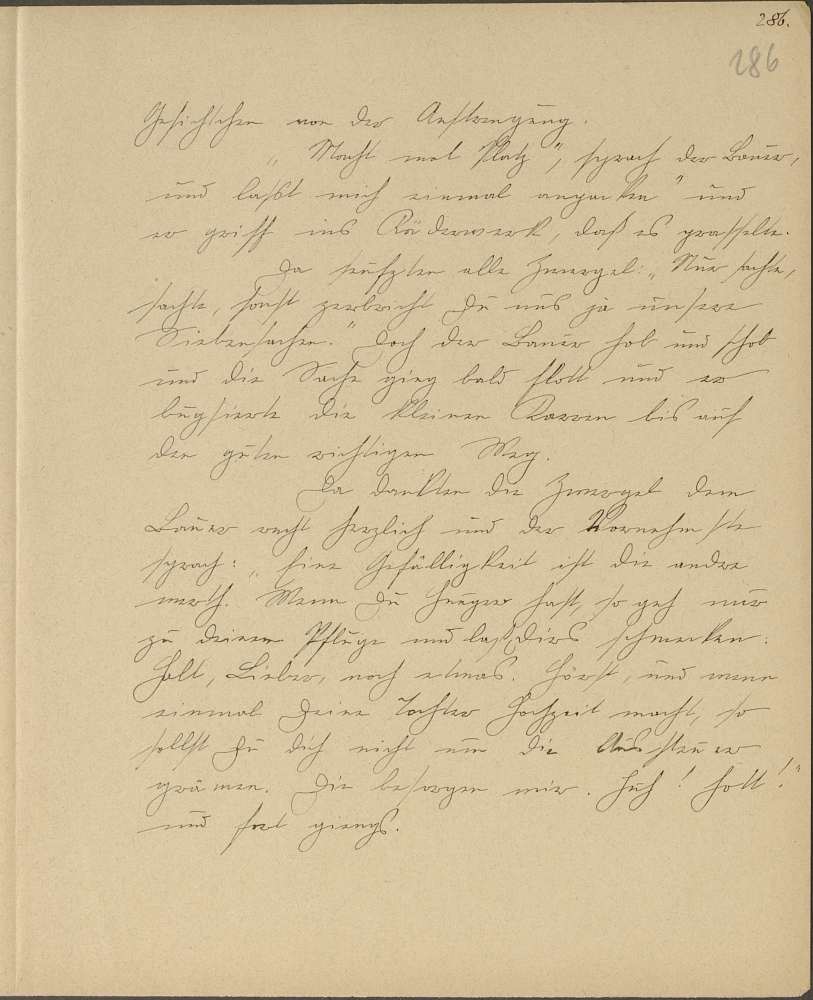 286.
286
Gesichtchen von der Anstrengung.
„Macht mal Platz", sprach der Bauer,
und laßt mich einmal anpacken" und
er griff ins Räderwerk, daß es prasselte.
Da seufzten alle Zwergel: „Nur sachte,
sachte, sonst zerbricht Du uns ja unsere
Siebensachen." Doch der Bauer hob und schob
und die Sache gieng bald flott und er
bugsierte die kleinen Karren bis auf
den guten richtigen Weg.
Da dankten die Zwergel dem
Bauer recht herzlich und der Vornehmste
sprach: „Eine Gefälligkeit ist die andre
werth. Wenn Du Hunger hast, so geh nur
zu deinem Pfluge und laß dirs schmecken.
Halt, Lieber, noch etwas. Hörst, und wenn
einmal Deine Tochter Hochzeit macht, so
sollst Du dich nicht um die Aussteuer
grämen. Die besorgen wir. Huh! Hott!"
und fort giengs.